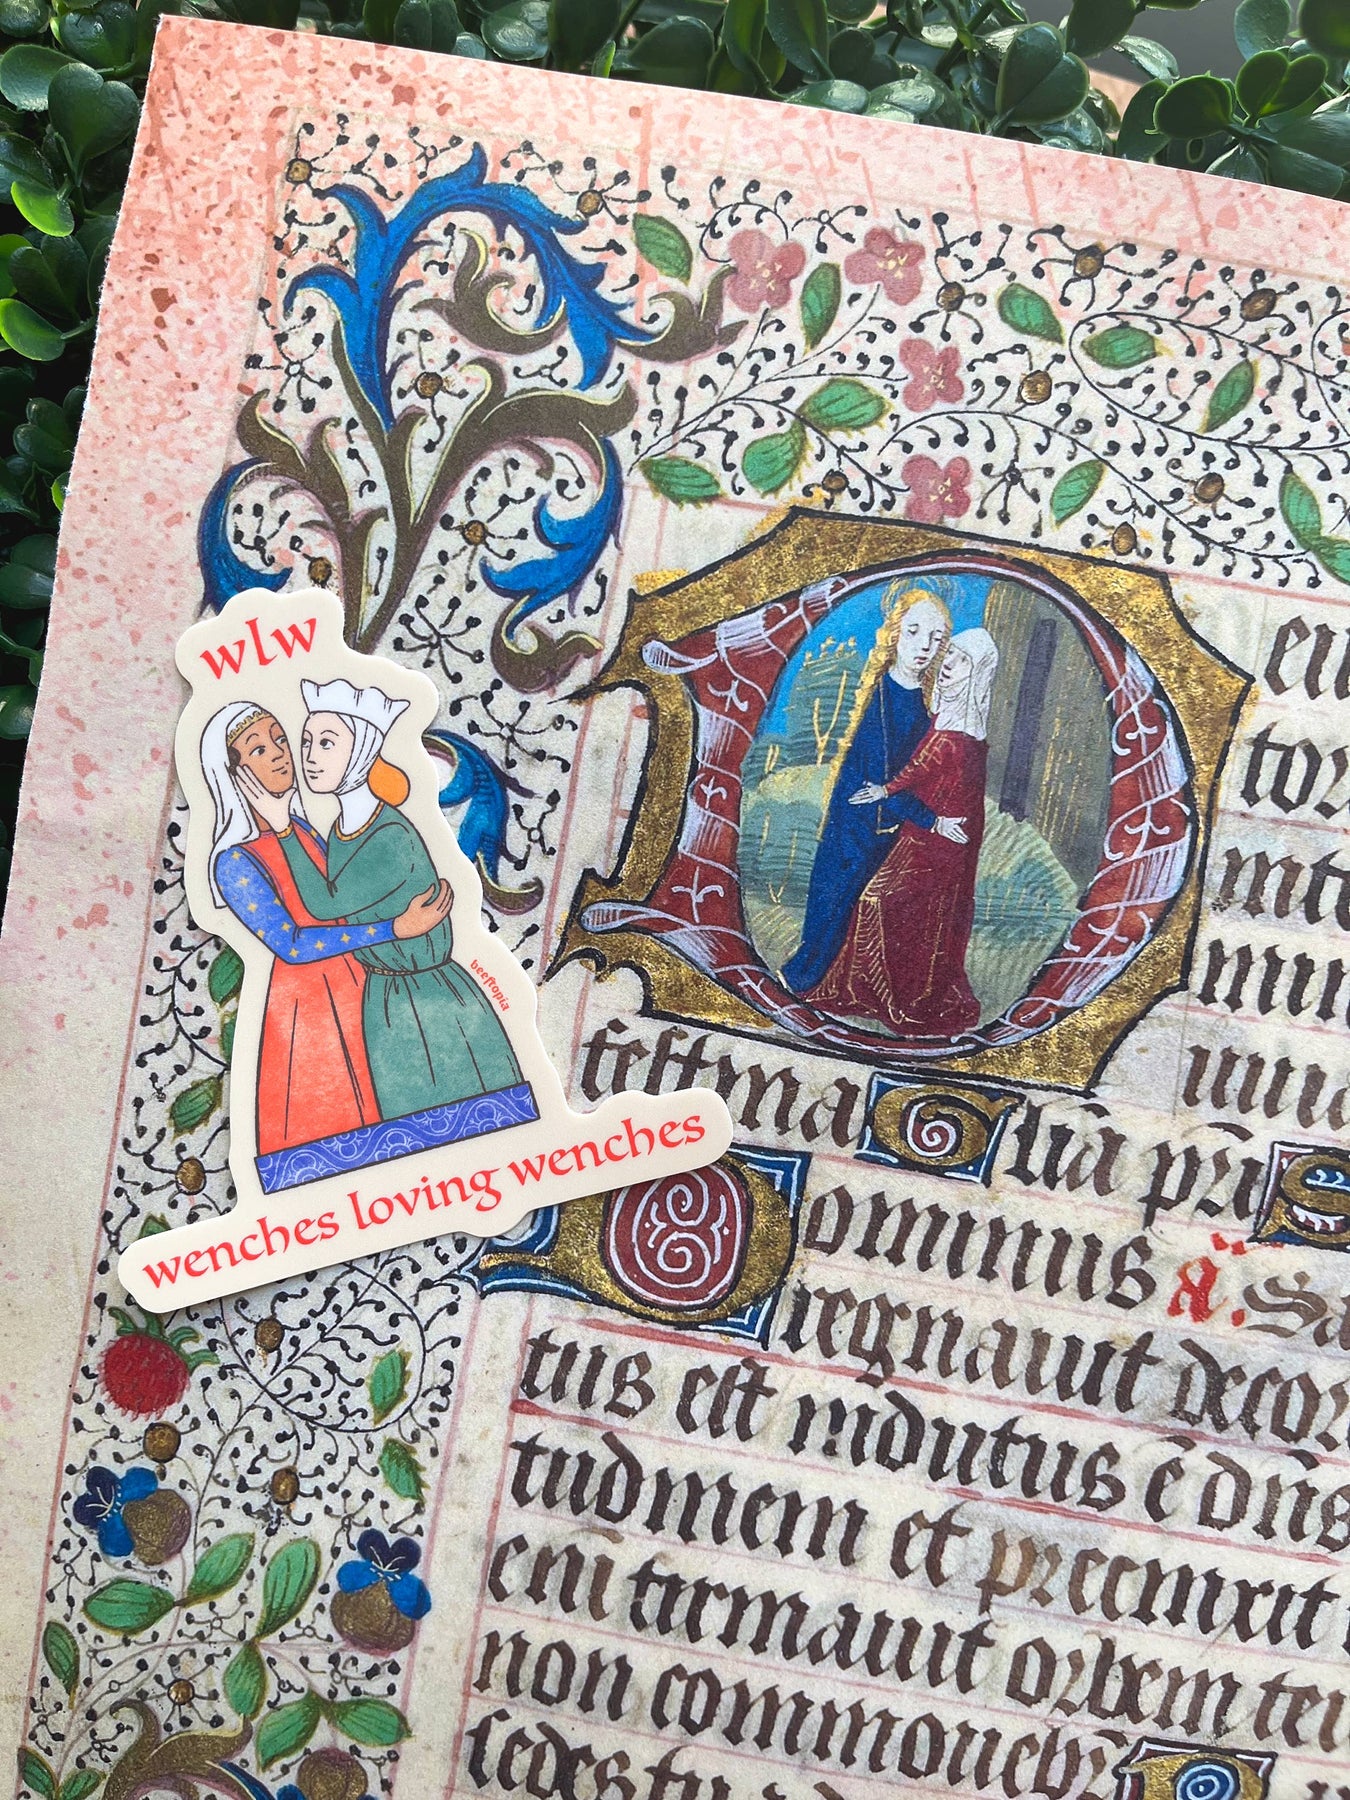 wlw
beeftopia
wenches loving wenches
festina Glia pri S
Dominus
regnauit decor
tus est indutus ē dns
tudinem et precinxit
enī firmauit orbem ter
non commouebi
sedes tu